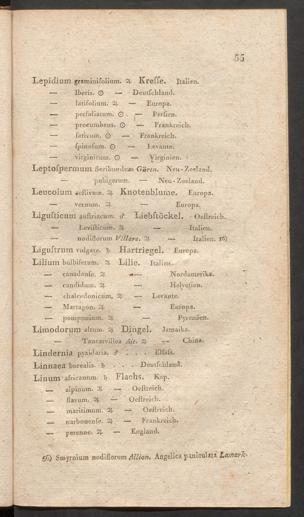 55
Lepidium graminifolium. ♃ Kreſſe. Italien.
— Iberis. ☉ — Deutſchland.
— latifolium. ♃ — Europa.
— perfoliatum. ☉ — Perſien.
— procumbens. ☉ — Frankreich.
— ſativum. ☉ — Frankreich.
— ſpinoſum. ☉ — Levante.
— virginicum. ☉ — Virginien.
Leptoſpermum floribundum Gärtn. Neu-Seeland.
— pubigerum. — Neu-Seeland.
Leucoium aeſtivum. ♃ Knotenblume. Europa.
— vernum. ♃ — Europa.
Liguſticum auſtriacum. ♂ Liebſtöckel. Oeſtreich.
— Leviſticum. ♃ — Italien.
— nodiflorum Villars. ♃ — Italien. 16)
Liguſtrum vulgare. ♄ Hartriegel. Europa.
Lilium bulbiferum. ♃ Lilie. Italien.
— canadenſe. ♃ — Nordamerika.
— candidum. ♃ — Helvetien.
— chalcedonicum. ♃ — Levante.
— Martagon. ♃ — Europa.
— pomponium. ♃ — Pyrenäen.
Limodorum altum. ♃ Dingel. Jamaika.
— Tancarvillea Ait. ♃ — China.
Lindernia pyxidaria. ♂ . . . Elſaſs.
Linnaea borealis. ♄ . . . Deutſchland.
Linum africanum. ♄ Flachs. Kap.
— alpinum. ♃ — Oeſtreich.
— flavum. ♃ — Oeſtreich.
— maritimum. ♃ — Oeſtreich.
— narbonenſe. ♃ — Frankreich.
— perenne. ♃ — England.
16) Smyrnium nodiflorum Allion. Angelica paniculata Lamark.